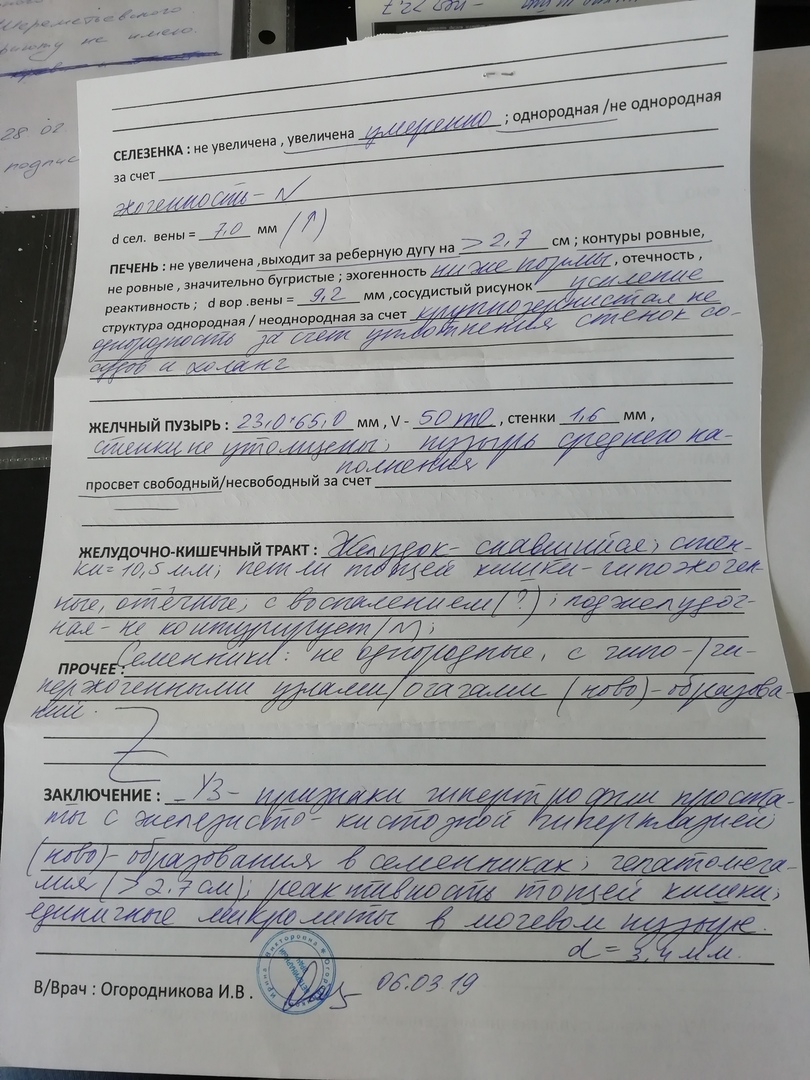 Шереметьевского.
не имею.
28 02
подпис
СЕЛЕЗЕНКА : не увеличена , увеличена умеренно ; однородная /не однородная
за счет
эхогенность - N
d сел. вены = 7,0 мм (↑)
ПЕЧЕНЬ : не увеличена ,выходит за реберную дугу на >2,7 см ; контуры ровные,
не ровные , значительно бугристые ; эхогенность ниже нормы , отечность ,
реактивность ; d вор .вены = 9,2 мм ,сосудистый рисунок усиление
структура однородная / неоднородная за счет крупнозернистая не
однородность за счет уплотнения стенок со-
судов и холанг
ЖЕЛЧНЫЙ ПУЗЫРЬ : 23,0*65,0 мм , V - 50 ml , стенки 1,6 мм ,
стенки не утолщены; пузырь среднего на-
полнения
просвет свободный/несвободный за счет
ЖЕЛУДОЧНО-КИШЕЧНЫЙ ТРАКТ : Желудок - спавшийся; стен-
ки = 10,5 мм; петли тощей кишки - гипоэхоген-
ные, отёчные; с воспалением (?); поджелудоч-
ная - не контурирует (N);
ПРОЧЕЕ : Семенники: не однородные, с гипо-/ги-
перэхогенными узлами/очагами (ново)-образова-
ний.
ЗАКЛЮЧЕНИЕ : - УЗ - признаки гипертрофии проста-
ты с железисто-кистозной гиперплазией;
(ново)-образования в семенниках; гепатомега-
лия (>2.7 см); реактивность тощей кишки;
единичные микролиты в мочевом пузыре.
d = 3,4 мм.
В/Врач : Огородникова И.В . 06.03.19